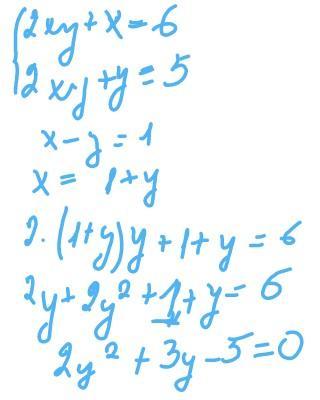 {2xy + x = 6
2xy + y = 5
x - y = 1
x = 1 + y
2 · (1+y)y + 1 + y = 6
2y + 2y² + 1 + y = 6
2y² + 3y - 5 = 0